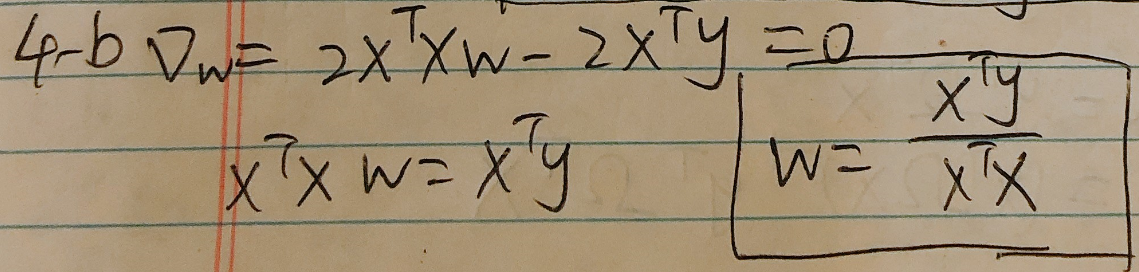 4-b ∇w = 2XᵀXw - 2Xᵀy = 0
XᵀX w = Xᵀy
w = Xᵀy / XᵀX